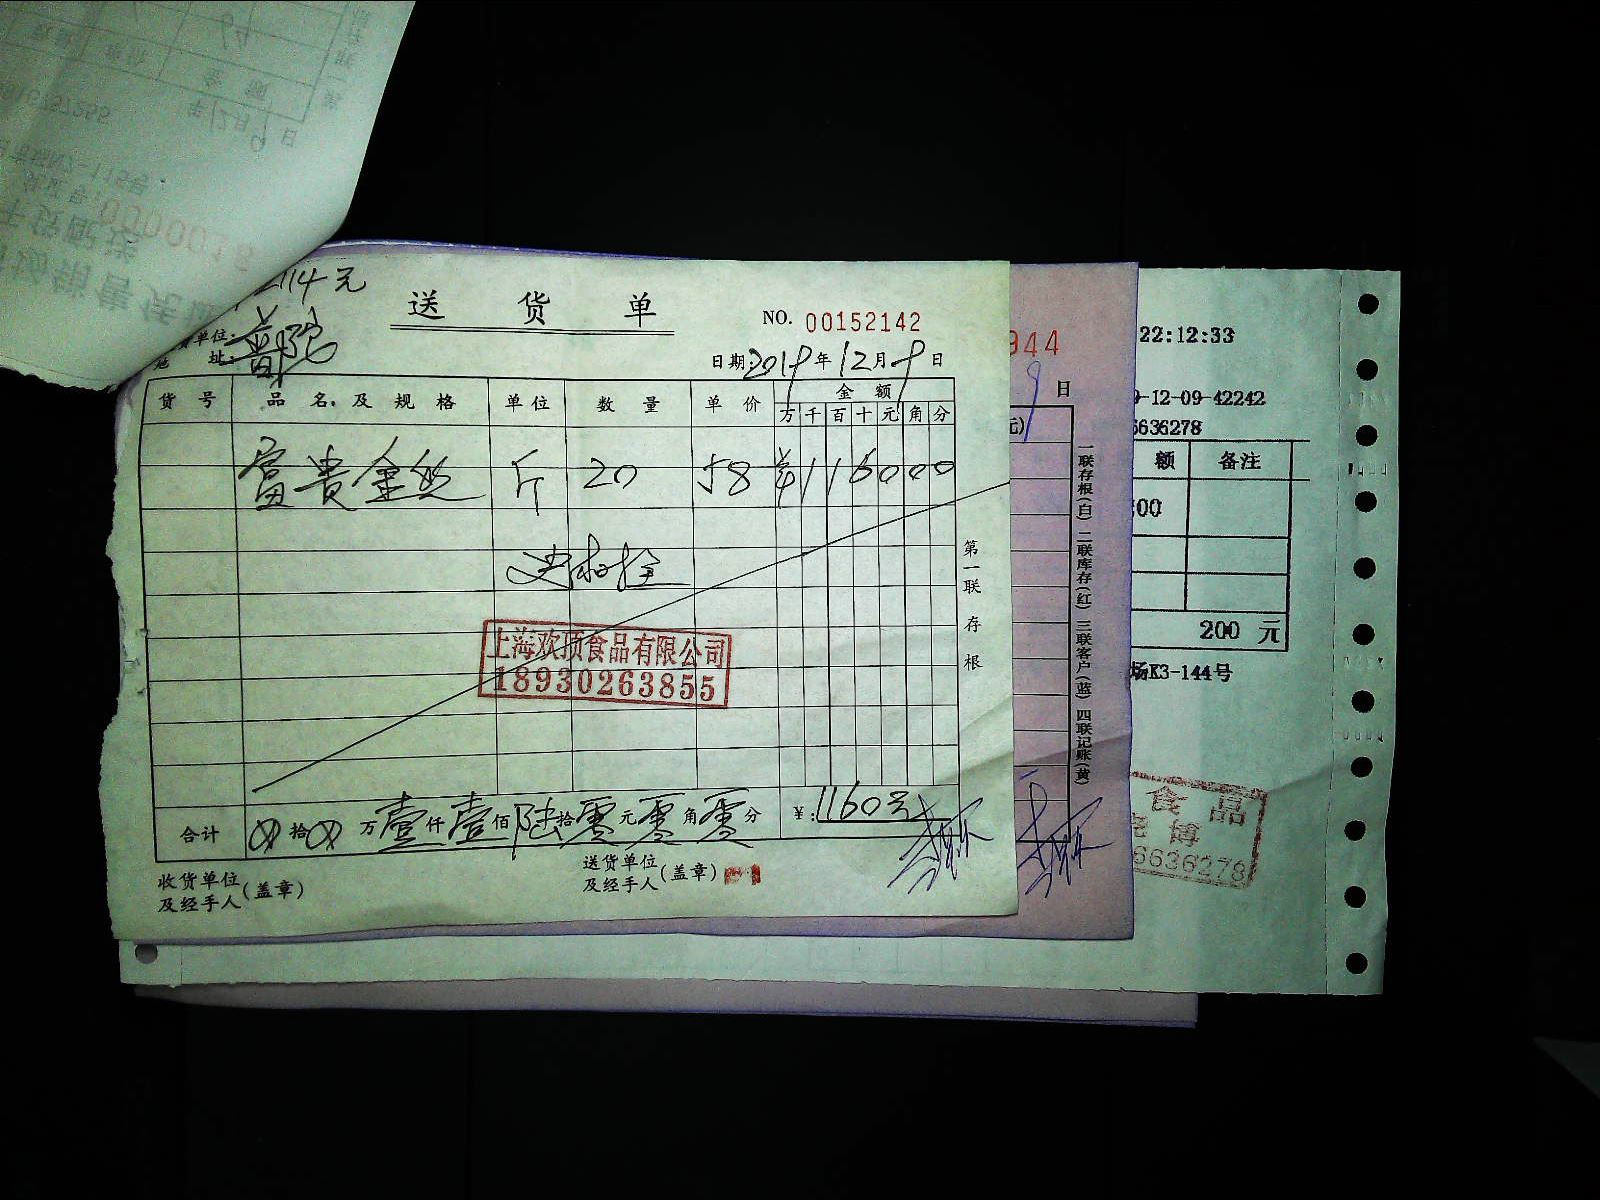 114元
送 货 单
NO. 00152142
单位:
地 址: 普陀
日期: 2019年12月9日
货 号 品 名 及 规 格 单 位 数 量 单 价 金 额
万 千 百 十 元 角 分
富贵金丝 斤 20 58 ¥116000
上海欢顶食品有限公司
18930263855
第一联 存根
合计 拾 万 壹仟 壹佰 陆拾 零元 零角 零分 ¥: 1160元
收货单位
及经手人(盖章)
送货单位
及经手人(盖章)
944
9日
元)
一联存根(白) 二联库存(红) 三联客户(蓝) 四联记账(黄)
22:12:33
-12-09-42242
6636278
额 备注
00
200 元
场K3-144号
食品
博
6636278